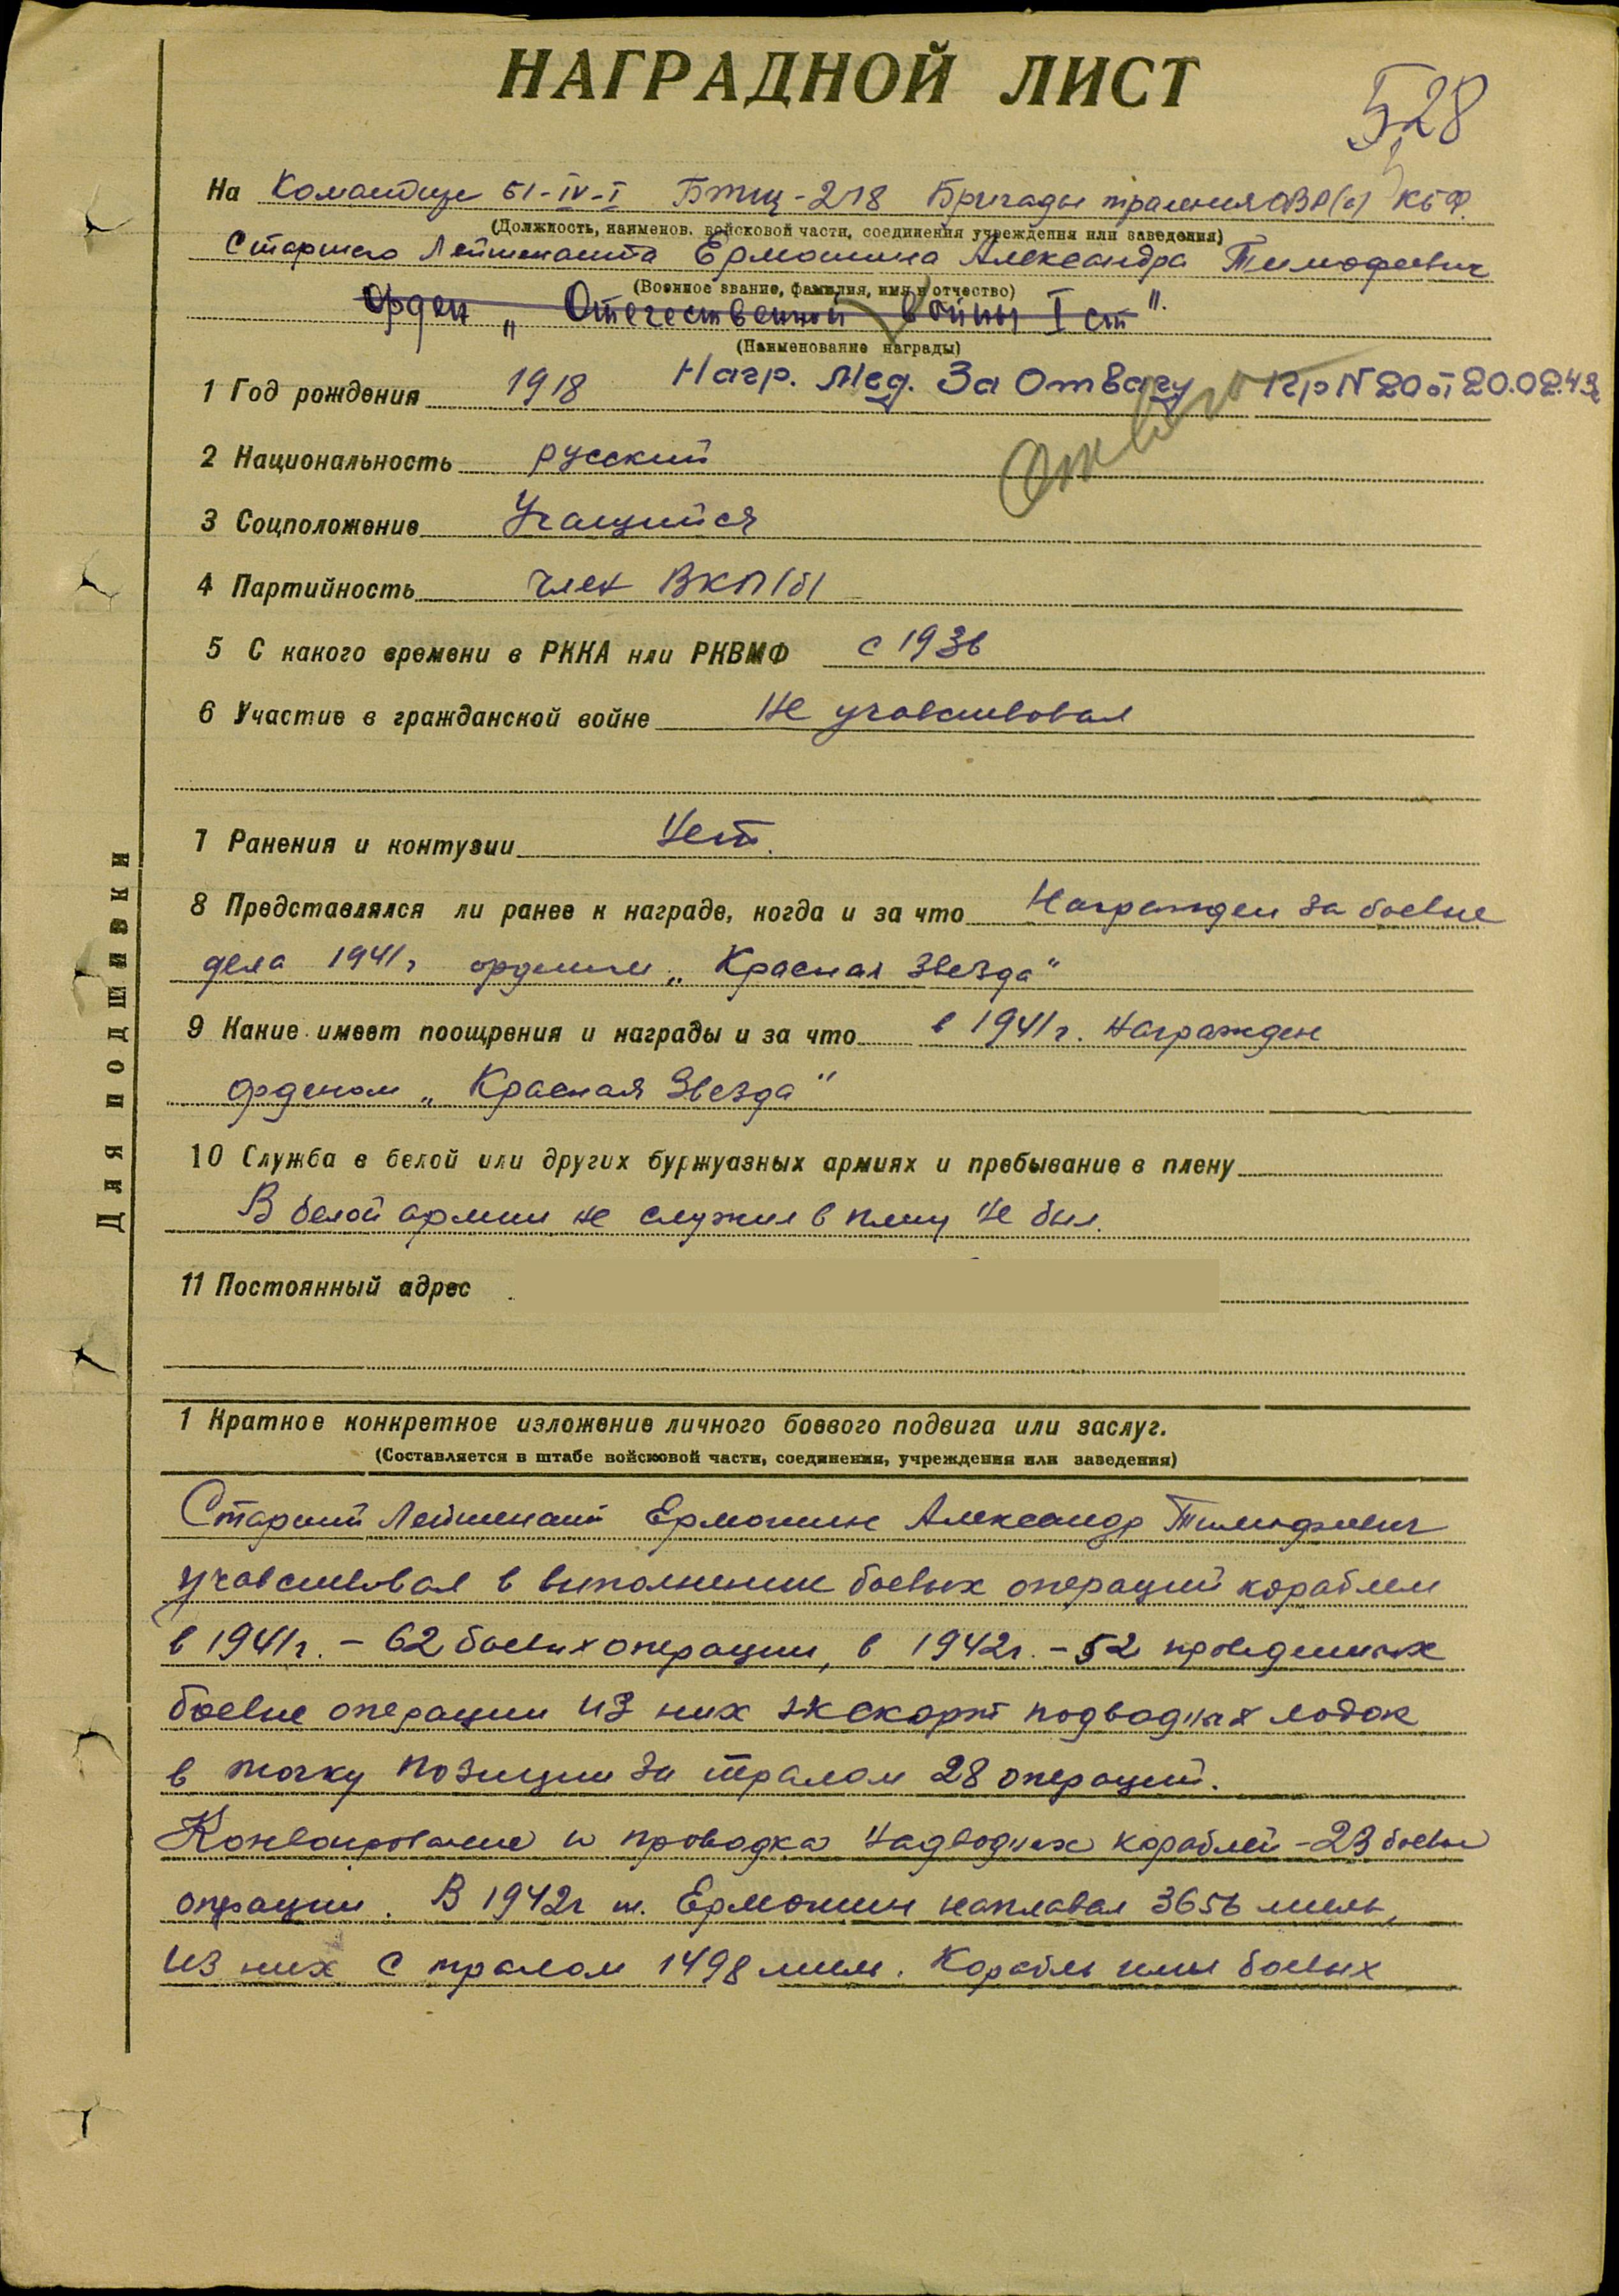 НАГРАДНОЙ ЛИСТ
528
На Командира БЧ-IV-I БТЩ-218 Бригады траления ОВР(а) КБФ.
(Должность, наименов. войсковой части, соединения учреждения или заведения)
Старшего Лейтенанта Ермошина Александра Тимофеевич
(Военное звание, фамилия, имя и отчество)
Орден „Отечественной войны I ст".
(Наименование награды)
1 Год рождения 1918 Нагр. Мед. За Отвагу Пр N 20 от 20.02.43
Отвага
2 Национальность русский
3 Соцположение Учащийся
4 Партийность член ВКП(б)
5 С какого времени в РККА или РКВМФ с 1936
6 Участие в гражданской войне не участвовал
7 Ранения и контузии Нет.
8 Представлялся ли ранее к награде, когда и за что Награжден за боевые
дела 1941г орденом „Красная Звезда"
9 Какие имеет поощрения и награды и за что в 1941г. Награжден
орденом „Красная Звезда"
10 Служба в белой или других буржуазных армиях и пребывание в плену
В белой армии не служил в плену не был.
11 Постоянный адрес
Для подшивки
1 Краткое конкретное изложение личного боевого подвига или заслуг.
(Составляется в штабе войсковой части, соединения, учреждения или заведения)
Старший Лейтенант Ермошин Александр Тимофеевич
участвовал в выполнении боевых операций кораблем
в 1941г. – 62 боевых операции, в 1942г. – 52 проведенных
боевые операции из них эскорт подводных лодок
в точку позиции за тралом 28 операций.
Конвоирование и проводка надводных кораблей – 23 боевые
операции. В 1942г т. Ермошин наплавал 3656 миль,
из них с тралом 1498 миль. Корабль имел боевых